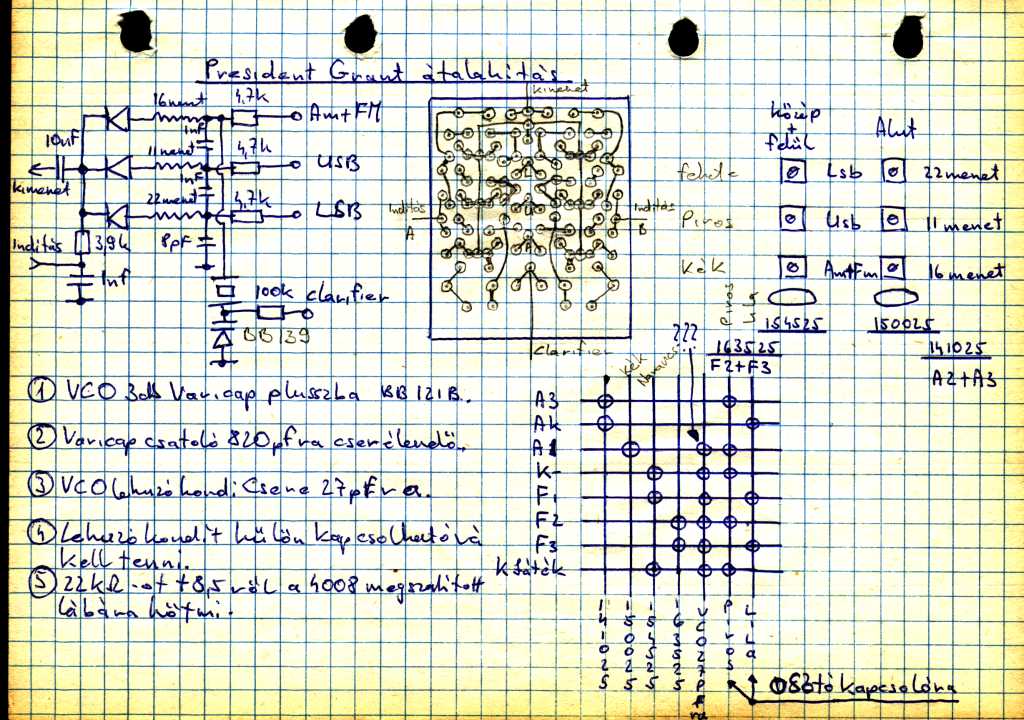 President Grant átalakítás
16menet
4,7k
Am+FM
1nF
10nF
11menet
4,7k
USB
1nF
kimenet
22menet
4,7k
LSB
Inditás
3,9k
8pF
1nF
100k
clarifier
BB139
kimenet
Inditás
A
Inditás
B
clarifier
közép
+
felül
Alul
fehér
Lsb
22menet
Piros
Usb
11menet
Kék
Am+Fm
16menet
154525
150025
141025
A2+A3
Piros
163525
F2+F3
???
kék
Narancs
① VCO 3db Varicap plusszba BB121B.
② Varicap csatoló 820pfra cserélendö.
③ VCO lehuzó kondi Csere 27pFra.
④ Lehuzó kondit külön kapcsolhatóvá
kell tenni.
⑤ 22kΩ-ot +8,5 ról a 4008 megszakitott
lábára kötni.
A3
Ak
A1
K-
F1
F2
F3
K Játék
141025
150025
154525
163525
VCO27pfra
Piros
Lila
Osztó kapcsolóra